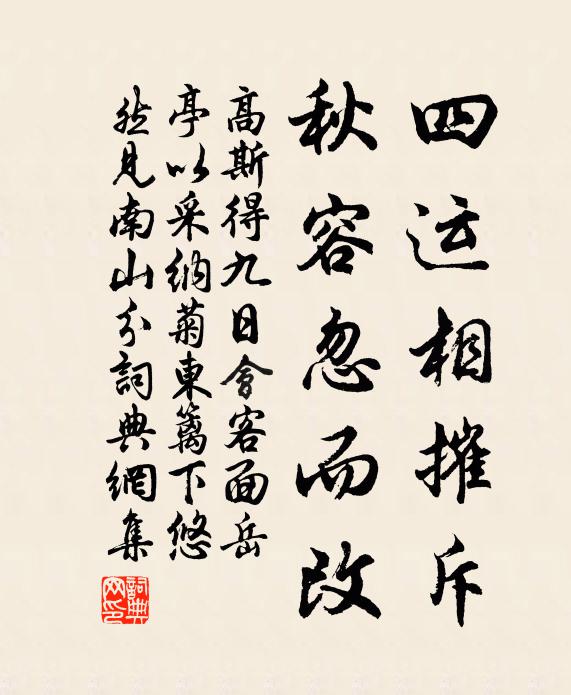 四运相摧斥
秋容忽而改
高斯得九日會客面岳
亭以采納菊東篱下悠
然見南山分詞典網集
詞典網印